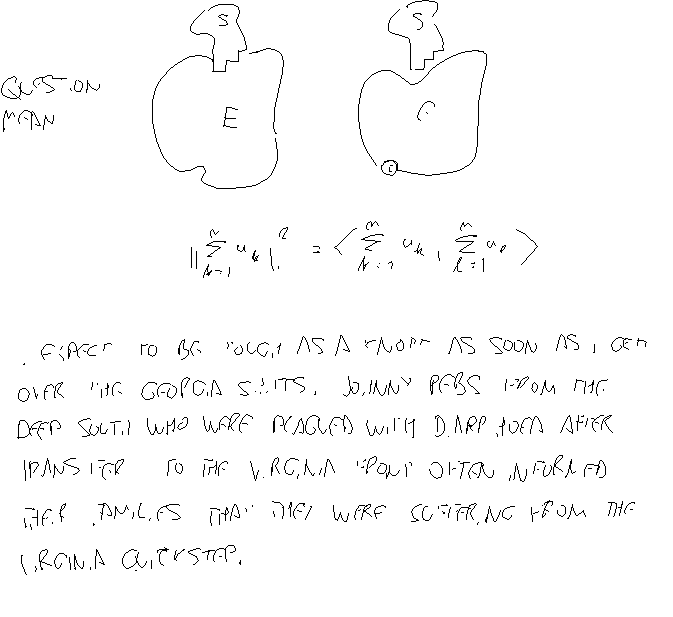 S S
QUESTION
E
MEAN
||∑_{k=1}^{n} u_k||² = ⟨∑_{k=1}^{n} u_k, ∑_{l=1}^{n} u_l⟩
I EXPECT TO BE TOUGH AS A KNOTT AS SOON AS I GET
OVER THE GEORGIA SHITS. JOHNNY REBS FROM THE
DEEP SOUTH WHO WERE PLAGUED WITH DIARRHOEA AFTER
TRANSFER TO THE VIRGINIA FRONT OFTEN INFORMED
THEIR FAMILIES THAT THEY WERE SUFFERING FROM THE
VIRGINIA QUICKSTEP.